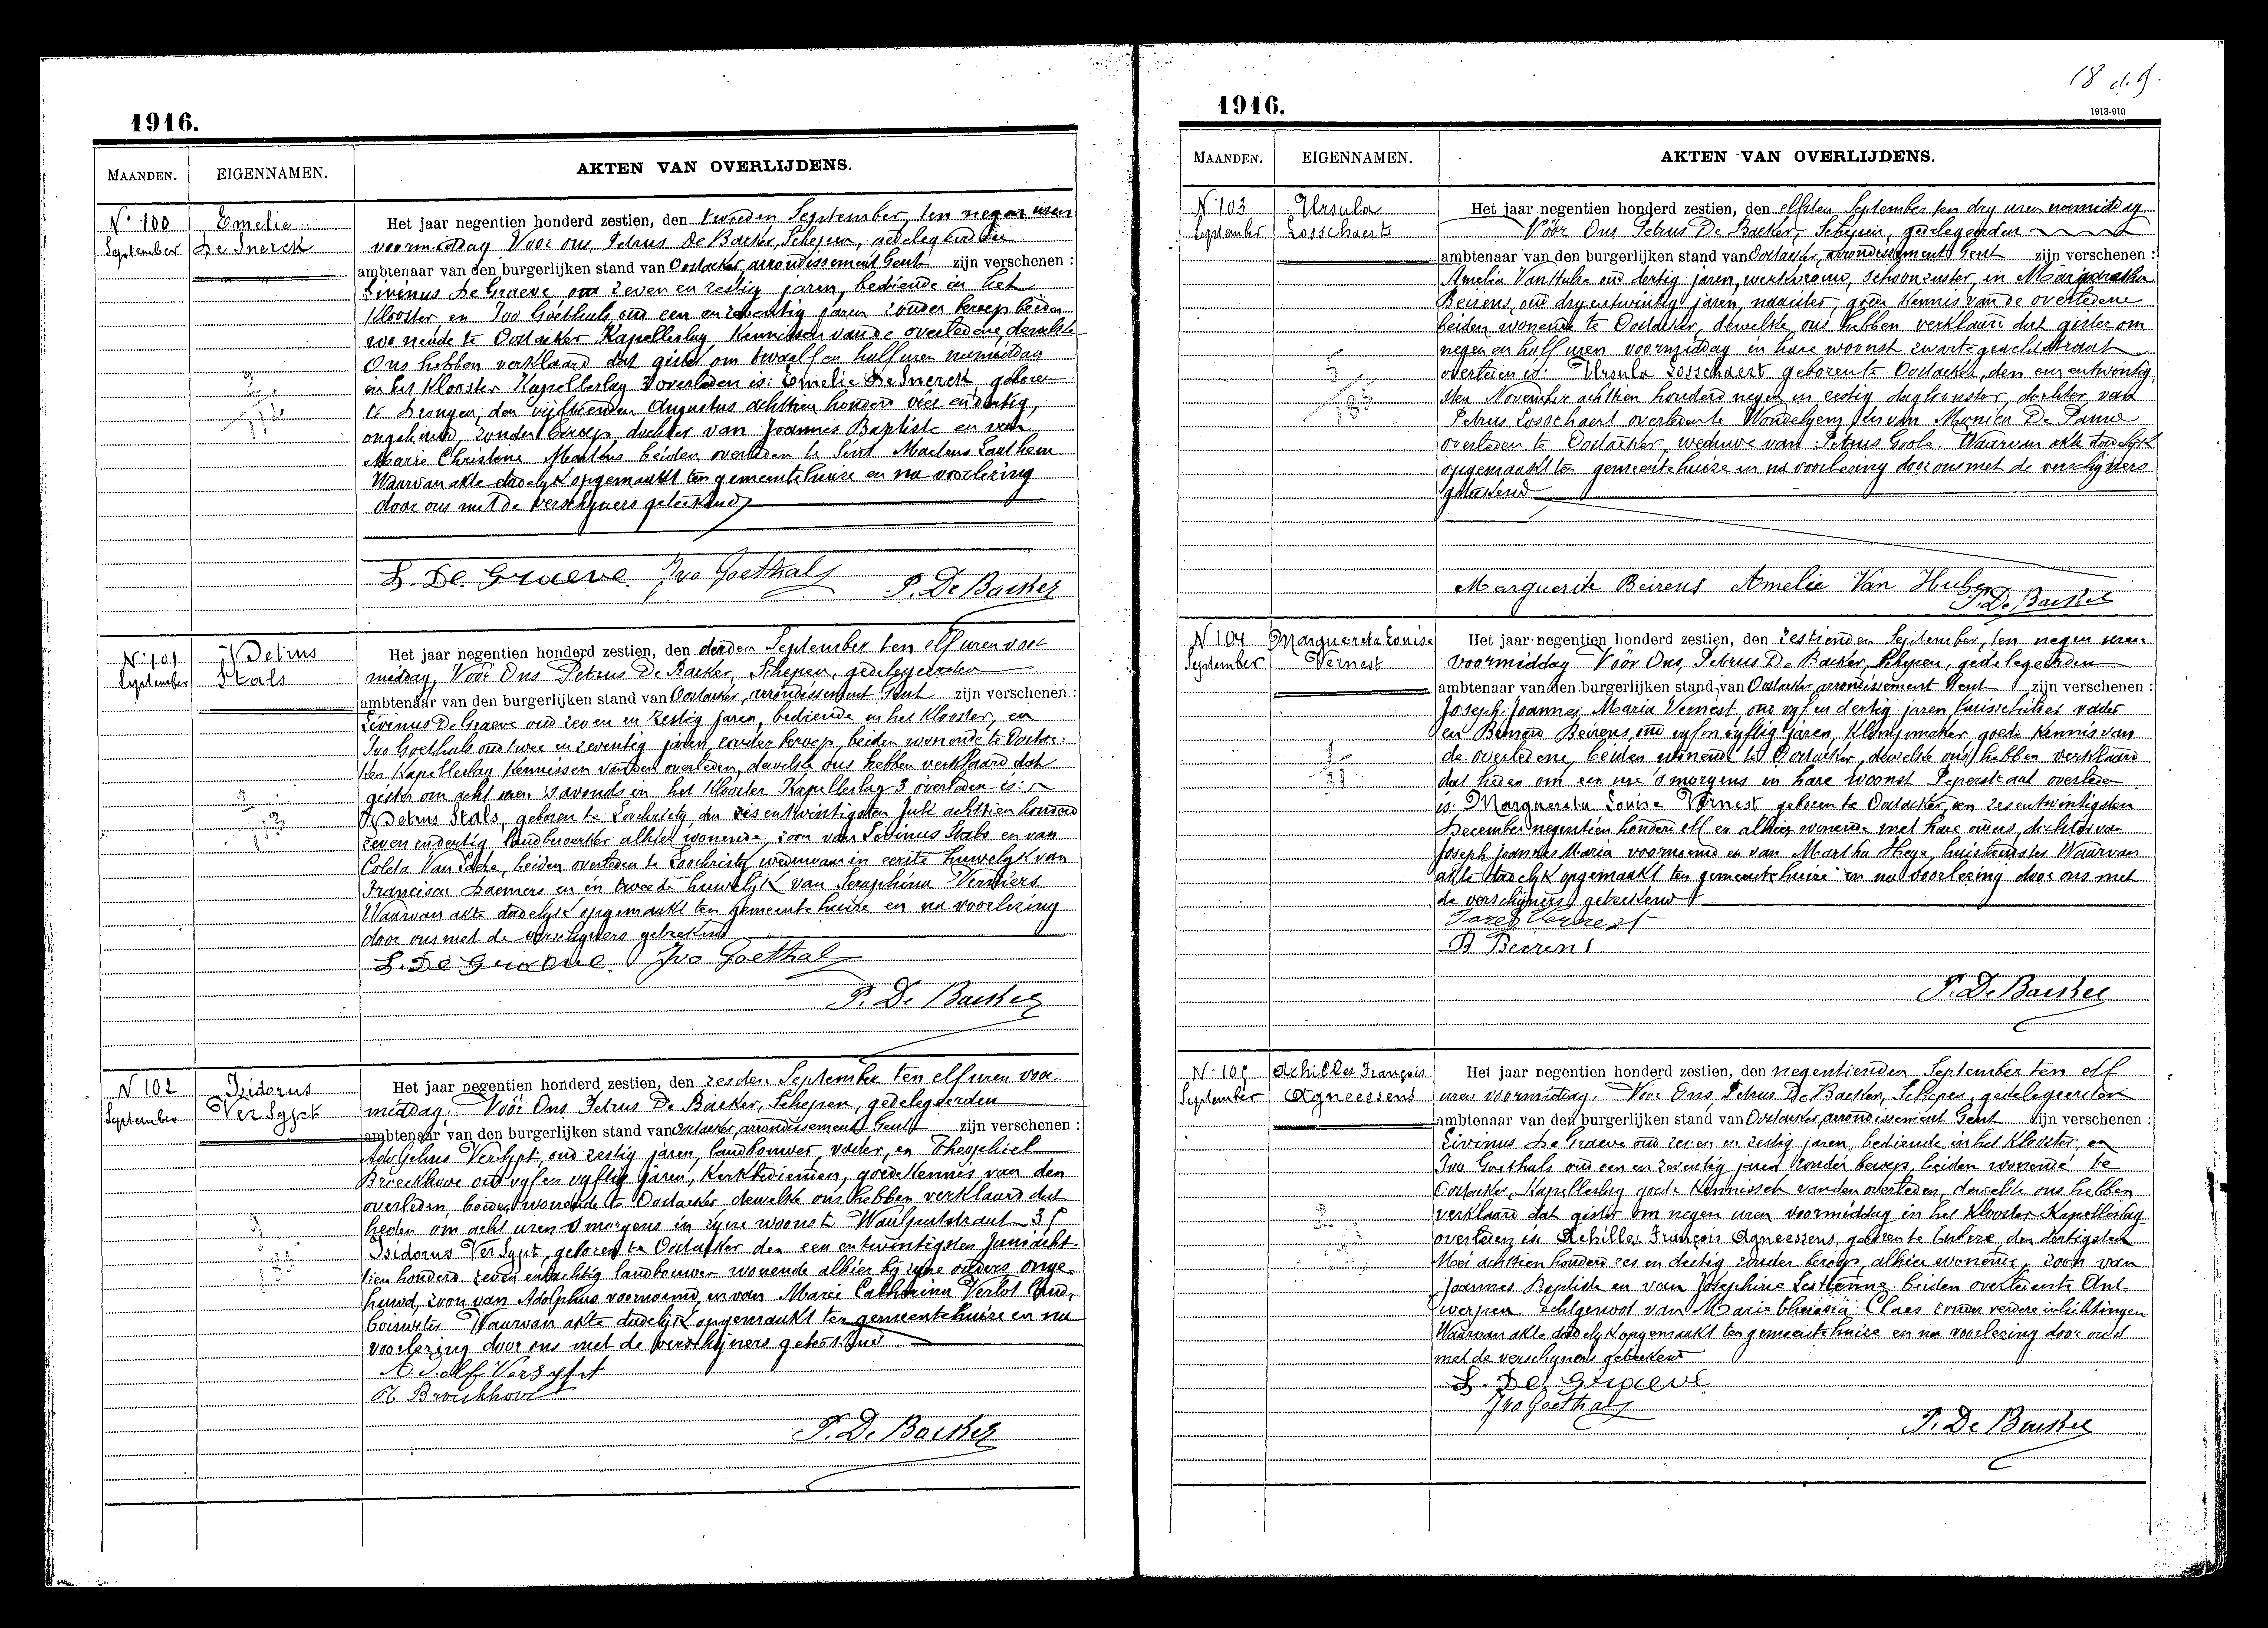 1916.
MAANDEN. EIGENNAMEN. AKTEN VAN OVERLIJDENS.
N° 100 Emelie
September De Snerck
Het jaar negentien honderd zestien, den tweeden September, ten negen uren
voormiddag Voor ons Petrus De Backer, Schepen, gedelegeerden
ambtenaar van den burgerlijken stand van Oostacker, arrondissement Gent zijn verschenen :
Livinus De Graeve oud zeven en zestig jaren, bediende in het
Klooster en Ivo Goethals oud een en zeventig jaren zonder beroep beiden
wonende te Oostacker Kapelleslag Kennissen van de overledene, dewelke
Ons hebben verklaard dat gister om twaalf en half uren namiddag
in het Klooster Kapelleslag 3 overleden is: Emelie De Snerck geboren
te Drongen, den vijftienden Augustus achttien honderd vier en dertig,
ongehuwd, zonder beroep dochter van Joannes Baptiste en van
Marie Christine Maethus beiden overleden te Sint Martens Laathem
Waarvan akte dadelyk opgemaakt ten gemeentehuize en na voorlezing
door ons met de verschyners geteekend
L. De Graeve Ivo Goethals P. De Backer
N° 101 Petrus
September Stals
Het jaar negentien honderd zestien, den derden September ten elf uren voor
middag, Vóór Ons Petrus De Backer, Schepen, gedelegeerden
ambtenaar van den burgerlijken stand van Oostacker, arrondissement Gent zijn verschenen :
Livinus De Graeve oud zeven en zestig jaren, bediende in het Klooster, en
Ivo Goethals oud twee en zeventig jaren, zonder beroep, beiden wonende te Oostac-
ker Kapelleslag Kennissen van den overleden, dewelke ons hebben verklaard dat
gister om acht uren 's avonds in het Klooster Kapelleslag 3 overleden is:
Petrus Stals, geboren te Loochristy den zes en twintigsten Juli achttien honderd
zeven en dertig landbewerker alhier wonende, zoon van Livinus Stals en van
Coleta Van Laere, beiden overleden te Loochristy weduwaar in eerste huwelyk van
Francisca Daemers en in tweede huwelyk van Seraphina Verstiers
Waarvan akte dadelyk opgemaakt ten gemeentehuize en na voorlezing
door ons met de verschyners geteekend
L. De Graeve Ivo Goethals
P. De Backer
N 102 Isidorus
September Versypt
Het jaar negentien honderd zestien, den zesden September ten elf uren voor-
middag. Vóór Ons Petrus De Backer, Schepen, gedelegeerden
ambtenaar van den burgerlijken stand van Oostacker, arrondissement Gent zijn verschenen :
Adolphus Versypt oud zestig jaren, landbouwer, vader, en Theophiel
Broeckhove oud vyf en vyftig jaren, Kerkbedienden, goede Kennis van den
overleden, beiden wonende te Oostacker dewelke ons hebben verklaard dat
heden om acht uren 's morgens in zyne woonst Waelputstraat 35
Isidorus Versypt, geboren te Oostacker den een en twintigsten Juni acht-
tien honderd zeven en tachtig landbouwer wonende alhier by zyne ouders onge-
huwd, zoon van Adolphus voornoemd, en van Marie Catharina Verlot land-
bouwster Waarvan akte dadelyk opgemaakt ten gemeentehuize en na
voorlezing door ons met de verschyners geteekend
Adolf Versypt
Th Broeckhove
P. De Backer
18 d. 9.
1916.
1913-910
MAANDEN. EIGENNAMEN. AKTEN VAN OVERLIJDENS.
N° 103 Ursula
September Losschaert
Het jaar negentien honderd zestien, den elfsten September ten dry uren namiddag
Vóór Ons Petrus De Backer, Schepen, gedelegeerden
ambtenaar van den burgerlijken stand van Oostacker, arrondissement Gent zijn verschenen :
Amelia Van Hulse oud dertig jaren, werkvrouw, schoonzuster, en Margaretha
Beirens, oud dry en twintig jaren, naaister, goede Kennis van de overledene
beiden wonende te Oostacker, dewelke ons hebben verklaard dat gister om
negen en half uren voormiddag in hare woonst zwarte gracht straat
overleden is: Ursula Losschaert geboren te Oostacker, den een en twintig-
sten November achttien honderd negen en zestig dagloonster, dochter van
Petrus Losschaert overleden te Wondelgem en van Monica De Pauw
overleden te Oostacker, weduwe van Petrus Goole. Waarvan akte dadelyk
opgemaakt ten gemeentehuize en na voorlezing door ons met de verschyners
geteekend
Marguerite Beirens Amelie Van Hulse
P. De Backer
N 104 Margareta Louise
September Vernest
Het jaar negentien honderd zestien, den zestienden September, ten negen uren
voormiddag Vóór Ons, Petrus De Backer, Schepen, gedelegeerden
ambtenaar van den burgerlijken stand van Oostacker arrondissement Gent zijn verschenen :
Joseph Joannes Maria Vernest, oud vyf en dertig jaren, huisschilder vader
en Bernard Beirens, oud vyf en vyftig jaren, Klompmaker goede Kennis van
de overledene, beiden wonende te Oostacker, dewelke ons hebben verklaard
dat heden om een ure 's morgens in hare woonst Peperstraat overleden
is: Margareta Louise Vernest geboren te Oostacker, den zes en twintigsten
December negentien honderd elf en alhier wonende met hare ouders, dochter van
Joseph Joannes Maria voornoemd en van Martha Heye, huishoudster Waarvan
akte dadelyk opgemaakt ten gemeentehuize en na voorlezing door ons met
de verschyners geteekend
Jozef Vernest
B Beirens
P. De Backer
N° 105 Achilles François
September Agneessens
Het jaar negentien honderd zestien, den negentienden September ten elf
uren voormiddag. Vóór Ons, Petrus De Backer, Schepen, gedelegeerden
ambtenaar van den burgerlijken stand van Oostacker arrondissement Gent zijn verschenen :
Livinus De Graeve oud zeven en zestig jaren, bediende in het Klooster, en
Ivo Goethals oud een en zeventig jaren zonder beroep, beiden wonende te
Oostacker, Kapelleslag goede Kennissen van den overleden, dewelke ons hebben
verklaard dat gister om negen uren voormiddag in het Klooster Kapelleslag
overleden is Achilles François Agneessens, geboren te den dertigsten
Mei achttien honderd zes en dertig zonder beroep, alhier wonende, zoon van
Joannes Baptiste en van Josephine beiden overleden te Ant-
werpen echtgenoot van Marie Claes zonder verdere inlichtingen
Waarvan akte dadelyk opgemaakt ten gemeentehuize en na voorlezing door ons
met de verschyners geteekend
L. De Graeve
Ivo Goethals
P. De Backer